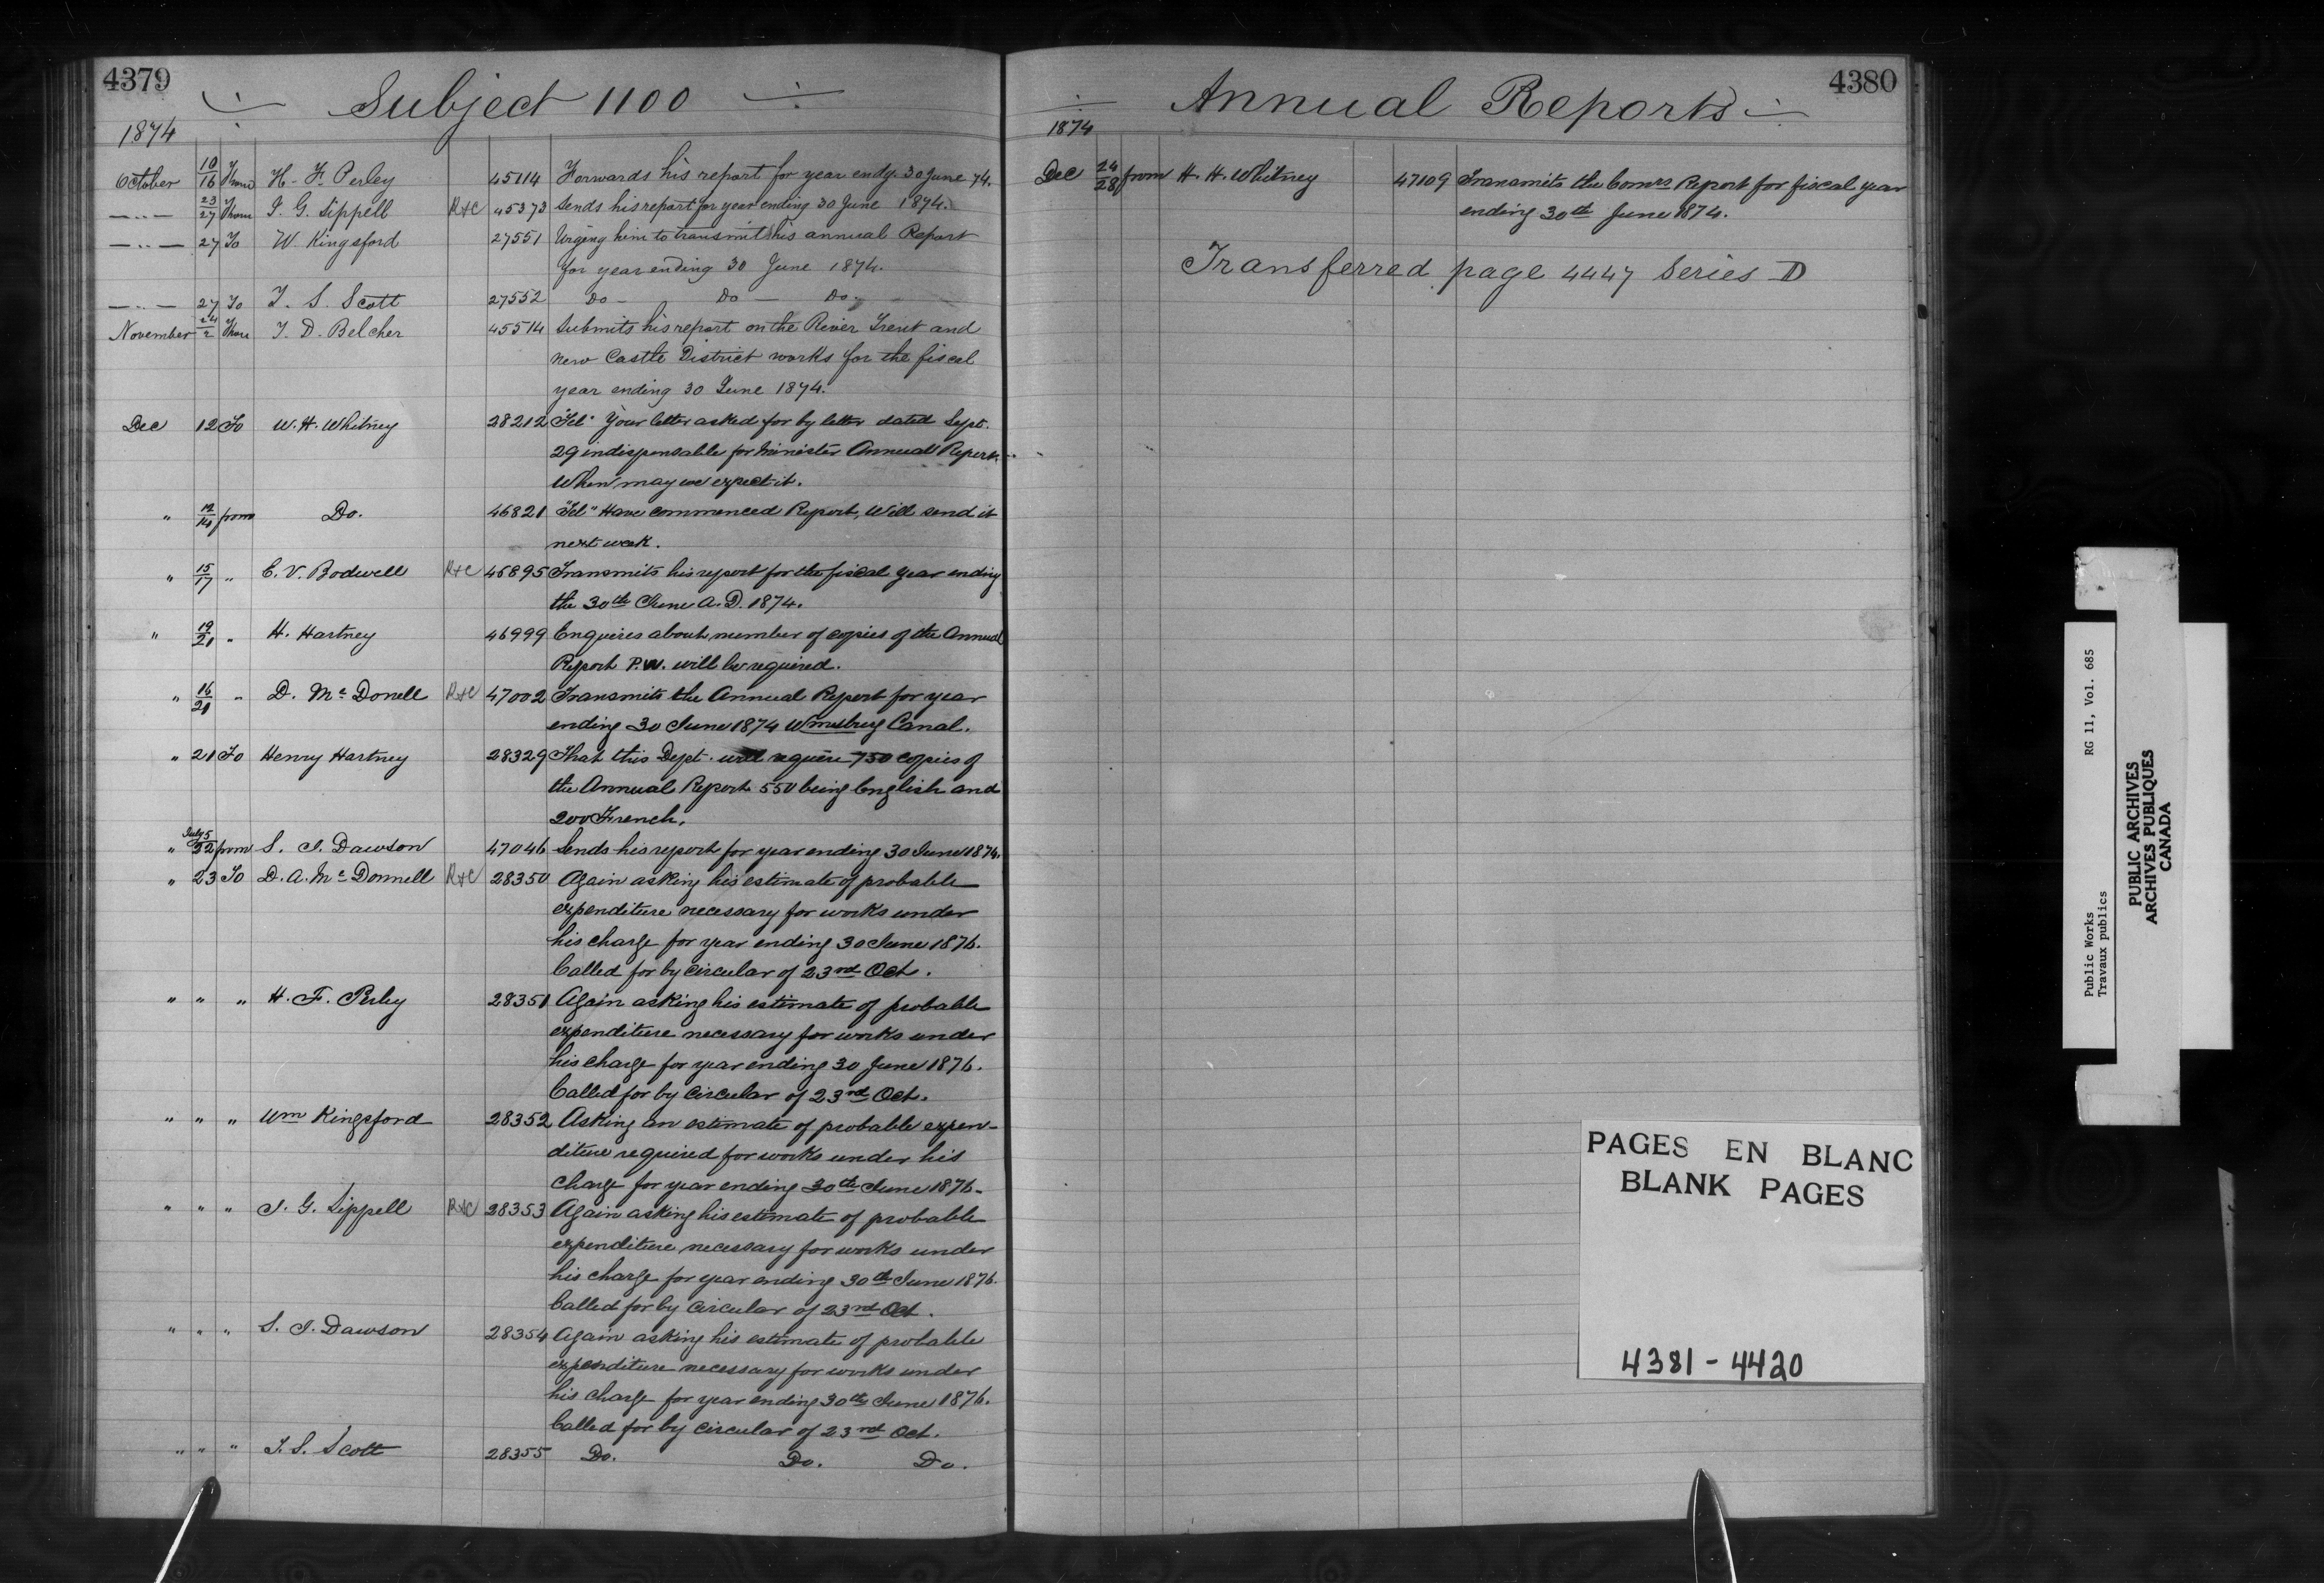 4379
Subject 1100
1874
October 10/16 From H. F. Perley 45114 Forwards his report for year endg. 30 June 74.
—"— 23/27 From J. G. Sippell R+C 45373 Sends his report for year ending 30 June 1874.
—"— 27 To W. Kingsford 27551 Urging him to transmit his annual Report
for year ending 30 June 1874.
—"— 27 To T. S. Scott 27552 Do — Do — Do.
November 24/2 From T. D. Belcher 45514 Submits his report on the River Trent and
New Castle District works for the fiscal
year ending 30 June 1874.
Dec 12 To W. H. Whitney 28212 "Tel" Your letter asked for by letter dated Sept.
29 indispensable for Minister Annual Report.
When may we expect it.
" 12/14 from Do. 46821 "Tel" Have commenced Report, Will send it
next week.
" 15/17 " E. V. Bodwell R+C 46895 Transmits his report for the fiscal year ending
the 30th June A.D. 1874.
" 19/21 " H. Hartney 46999 Enquires about number of copies of the Annual
Report P.W. will be required.
" 16/21 " D. Mc Donell R+C 47002 Transmits the Annual Report for year
ending 30 June 1874 Wmsburg Canal.
" 21 To Henry Hartney 28329 That this Dept. will require 750 copies of
the Annual Report 550 being English and
200 French.
" July 5/22 from S. J. Dawson 47046 Sends his report for year ending 30 June 1874.
" 23 To D. A. Mc Donnell R+C 28350 Again asking his estimate of probable
expenditure necessary for works under
his charge for year ending 30 June 1876.
Called for by circular of 23rd Oct.
" " " H. F. Perley 28351 Again asking his estimate of probable
expenditure necessary for works under
his charge for year ending 30 June 1876.
Called for by circular of 23rd Oct.
" " " Wm Kingsford 28352 Asking an estimate of probable expen-
diture required for works under his
charge for year ending 30th June 1876.
" " " J. G. Sippell R+C 28353 Again asking his estimate of probable
expenditure necessary for works under
his charge for year ending 30th June 1876.
Called for by circular of 23rd Oct.
" " " S. J. Dawson 28354 Again asking his estimate of probable
expenditure necessary for works under
his charge for year ending 30th June 1876.
Called for by circular of 23rd Oct.
" " " T. S. Scott 28355 Do. Do. Do.
4380
Annual Reports
1874
Dec 24/28 from H. H. Whitney 47109 Transmits the Comrs Report for fiscal year
ending 30th June 1874.
Transferred page 4447 Series D
PAGES EN BLANC
BLANK PAGES
4381 - 4420
Public Works RG 11, Vol. 685
Travaux publics
PUBLIC ARCHIVES
ARCHIVES PUBLIQUES
CANADA